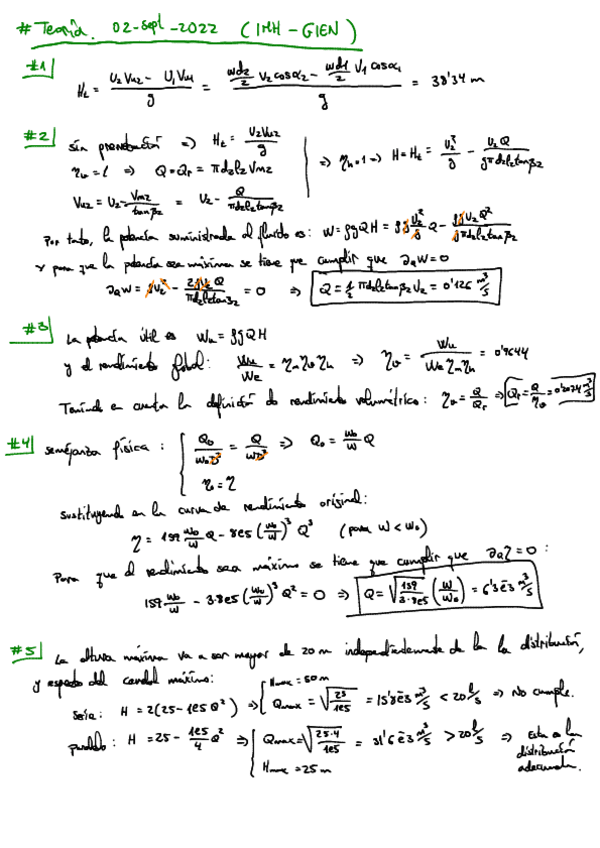 # Teoría 02-sept-2022 (IMH-GIEN)
#1
H_t = (U_2 V_u2 - U_1 V_u1)/g = (ωd_2/2 V_2 cosα_2 - ωd_1/2 V_1 cosα_1)/g = 38'34 m
#2 sin prerrotación => H_t = U_2 V_u2/g
η_v = 1 => Q = Q_r = πd_2 l_2 V_m2
=> η_h = 1 => H = H_t = U_2²/g - U_2 Q/(gπd_2 l_2 tanβ_2)
V_u2 = U_2 - V_m2/tanβ_2 = U_2 - Q/(πd_2 l_2 tanβ_2)
Por tanto, la potencia suministrada al fluido es: W = ρgQH = ρg U_2²/g Q - ρg U_2 Q²/(gπd_2 l_2 tanβ_2)
y para que la potencia sea máxima se tiene que cumplir que ∂_Q W = 0
∂_Q W = ρU_2² - 2ρU_2 Q/(πd_2 l_2 tanβ_2) = 0 => Q = 1/2 πd_2 l_2 tanβ_2 U_2 = 0'126 m³/s
#3 La potencia útil es W_u = ρgQH
y el rendimiento global: W_u/W_e = η_m η_v η_h => η_v = W_u/(W_e η_m η_h) = 0'9644
Teniendo en cuenta la definición de rendimiento volumétrico: η_v = Q/Q_r => Q_r = Q/η_v = 0'2074 m³/s
#4 semejanza física: Q_0/(ω_0 D³) = Q/(ωD³) => Q_0 = ω_0/ω Q
η_0 = η
sustituyendo en la curva de rendimiento original:
η = 159 ω_0/ω Q - 8e5 (ω_0/ω)³ Q³ (para ω < ω_0)
Para que el rendimiento sea máximo se tiene que cumplir que ∂_Q η = 0:
159 ω_0/ω - 3·8e5 (ω_0/ω)³ Q² = 0 => Q = √(159/(3·8e5)) (ω/ω_0) = 6'3e-3 m³/s
#5 La altura máxima va a ser mayor de 20 m independientemente de la la distribución,
y respecto del caudal máximo:
Serie: H = 2(25 - 1e5 Q²) => H_max = 50 m
Q_max = √(25/1e5) = 15'8e-3 m³/s < 20 l/s => No cumple.
paralelo: H = 25 - 1e5/4 Q² => Q_max = √(25·4/1e5) = 31'6e-3 m³/s > 20 l/s => Esta es la distribución adecuada.
H_max = 25 m